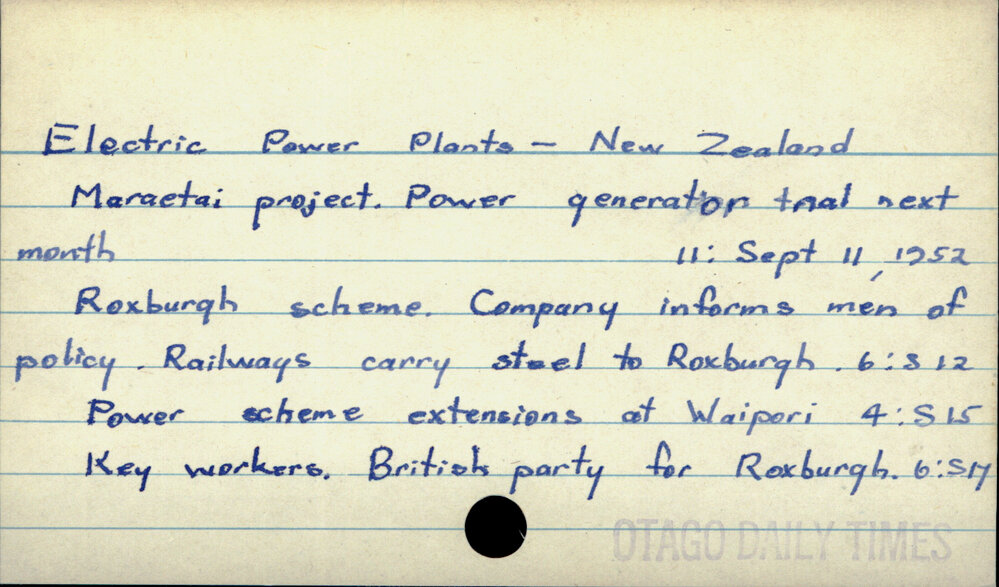 Electric Power Plants - New Zealand
Maraetai project. Power generator trial next
month 11: Sept 11, 1952
Roxburgh scheme. Company informs men of
policy. Railways carry steel to Roxburgh. 6: S 12
Power scheme extensions at Waipori 4: S 15
Key workers. British party for Roxburgh. 6: S 17
OTAGO DAILY TIMES